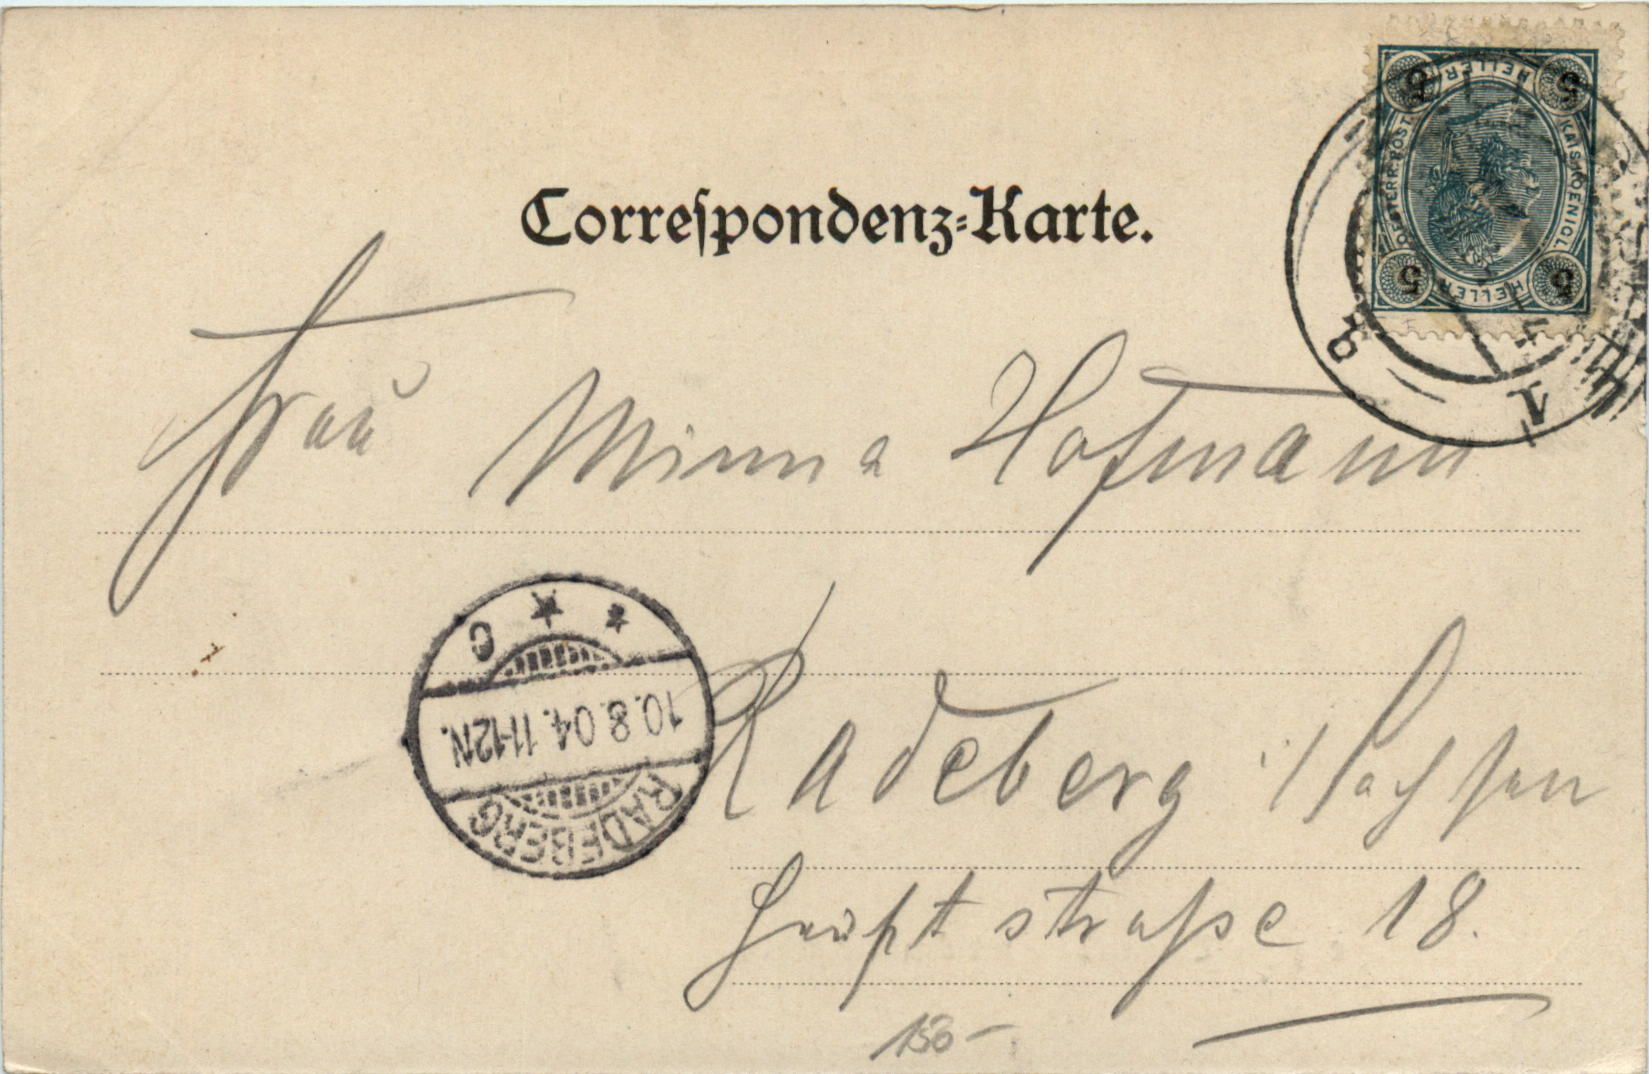 Correspondenz-Karte.
5 HELLER 5
KAIS. KOENIGL.
OESTERR. POST
5 HELLER 5
8 1
Frau Minna Hofmann
Radeberg i/Sachsen
Hauptstraße 18.
RADEBERG
10.8.04. 11-12N.
* * c
150-